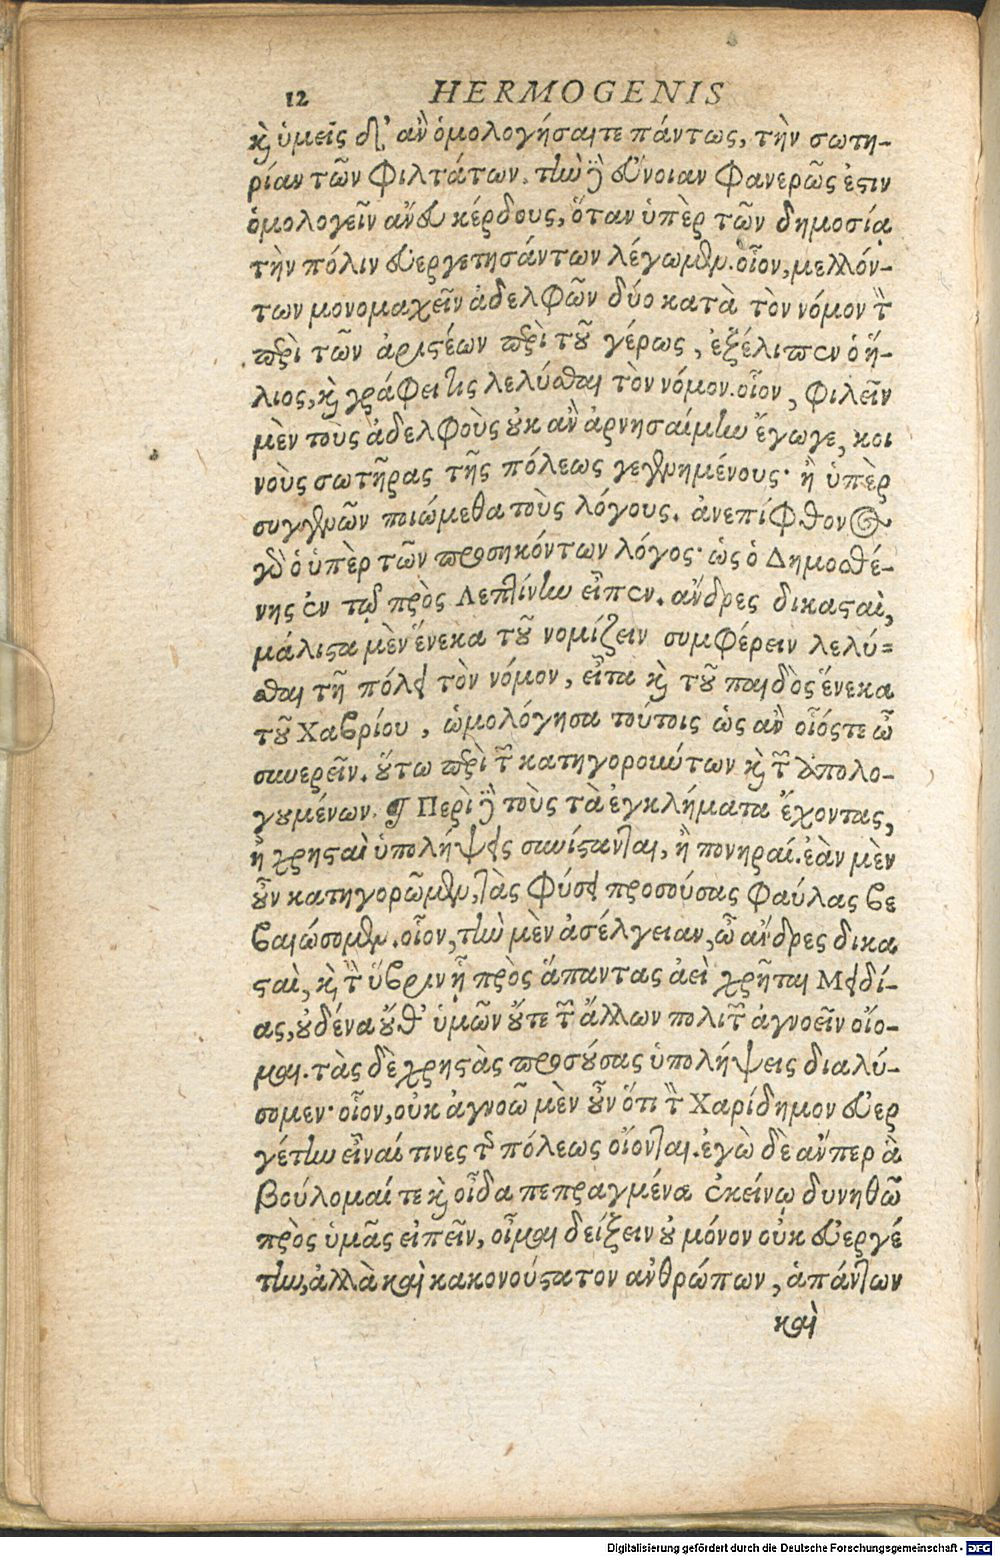 12 HERMOGENIS
καὶ ὑμεῖς δ' ἂν ὁμολογήσαιτε πάντως, τὴν σωτη-
ρίαν τῶν φιλτάτων. τὴν δὲ εὔνοιαν φανερῶς ἔστιν
ὁμολογεῖν ἄνευ κέρδους, ὅταν ὑπὲρ τῶν δημοσίᾳ
τὴν πόλιν εὐεργετησάντων λέγωμεν. οἷον, μελλόν-
των μονομαχεῖν ἀδελφῶν δύο κατὰ τὸν νόμον τὸν
περὶ τῶν ἀριστέων περὶ τοῦ γέρως, ἐξέλιπεν ὁ ἥ-
λιος, καὶ γράφει τις λελύσθαι τὸν νόμον. οἷον, φιλεῖν
μὲν τοὺς ἀδελφοὺς οὐκ ἂν ἀρνησαίμην ἔγωγε, κοι
νοὺς σωτῆρας τῆς πόλεως γεγενημένους· ἢ ὑπὲρ
συγγενῶν ποιώμεθα τοὺς λόγους. ἀνεπίφθονος
γὰρ ὁ ὑπὲρ τῶν προσηκόντων λόγος· ὡς ὁ Δημοσθέ-
νης ἐν τῷ πρὸς Λεπτίνην εἶπεν. ἄνδρες δικασταὶ,
μάλιστα μὲν ἕνεκα τοῦ νομίζειν συμφέρειν λελύ-
σθαι τῇ πόλει τὸν νόμον, εἶτα καὶ τοῦ παιδὸς ἕνεκα
τοῦ Χαβρίου, ὡμολόγησα τούτοις ὡς ἂν οἷόστε ὦ
συνερεῖν. οὕτω περὶ τῶν κατηγορούντων καὶ τῶν ἀπολο-
γουμένων. ¶ Περὶ δὲ τοὺς τὰ ἐγκλήματα ἔχοντας,
ἢ χρησταὶ ὑπολήψεις συνίστανται, ἢ πονηραί. ἐὰν μὲν
οὖν κατηγορῶμεν, τὰς φύσει προσούσας φαύλας βε
βαιώσομεν. οἷον, τὴν μὲν ἀσέλγειαν, ὦ ἄνδρες δικα
σταὶ, καὶ τὴν ὕβριν ᾗ πρὸς ἅπαντας ἀεὶ χρῆται Μειδί-
ας, οὐδένα οὔθ' ὑμῶν οὔτε τῶν ἄλλων πολιτῶν ἀγνοεῖν οἴο-
μαι. τὰς δὲ χρηστὰς προσούσας ὑπολήψεις διαλύ-
σομεν· οἷον, οὐκ ἀγνοῶ μὲν οὖν ὅτι τὸν Χαρίδημον εὐερ
γέτην εἶναί τινες τῆς πόλεως οἴονται. ἐγὼ δὲ ἄνπερ ἃ
βούλομαί τε καὶ οἶδα πεπραγμένα ἐκείνῳ δυνηθῶ
πρὸς ὑμᾶς εἰπεῖν, οἶμαι δείξειν οὐ μόνον οὐκ εὐεργέ
την, ἀλλὰ καὶ κακονούστατον ἀνθρώπων, ἁπάντων
καὶ
Digitalisierung gefördert durch die Deutsche Forschungsgemeinschaft - DFG